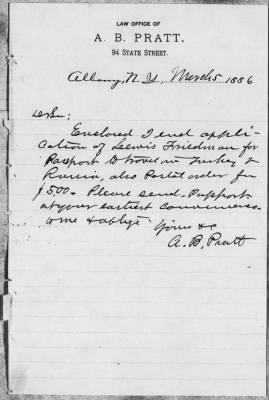 LAW OFFICE OF
A. B. PRATT,
94 STATE STREET.
Albany, N.Y. March 5 1886
Dr Sir;
Enclosed I send appli-
cation of Lewis Friedman for
Passport to travel in Turkey &
Russia, also Postal order for
$5.00 - Please send Passport
at your earliest convenience
to me & oblige
Yours &c
A. B. Pratt